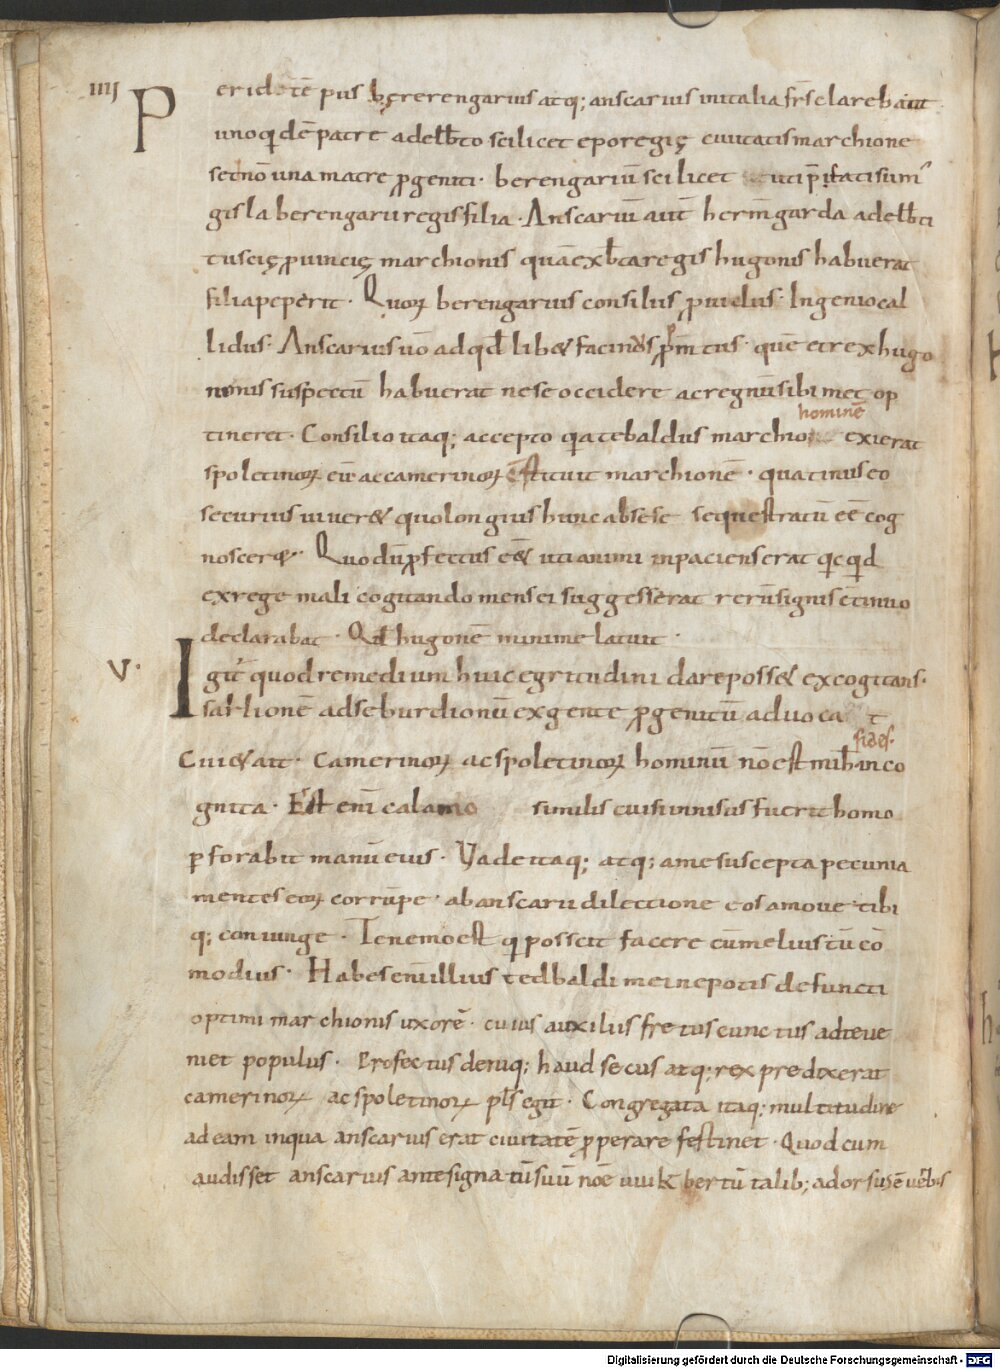 IIIJ Per id tē pus bęrerengarius atq; anscarius in italia frs̄ clarebant
uno qidē patre adelb̄to scilicet eporegię ciuitatis marchione
sed nō una matre ꝓgeniti · berengariū scilicet uti p̄ fati sum᷒
gisla berengarii regis filia · Anscariū aut̄ hermgarda adelb̄ti
tuscię ꝓuincię marchionis quā ex b̄ta regis hugonis habuerat
filia peperit · Quoꝝ berengarius consiliis ꝓuidus · Ingenio cal
lidus · Anscarius uō ad qd̄ lib& facinoris prōmtus · quē et rex hugo
nonis suspectū habuerat ne se occidere ac regnū sibimet op
tineret · Consilio itaq; accepto qia tebaldus marchio hominē exierat
spoletinoꝝ eū ac camerinoꝝ cōstituit marchionē · quatinus eo
securius uiuer& quo longius hunc ab se se sequestratū eē cog
noscer& · Quo dū ꝓfectus eēt uti animi inpaciens erat qicqid
ex rege mali cogitando mens ei suggesserat rerū signis cōtinuo
declarabat · Qd̄ hugonē minime latuit ·
V · Igit̄ quod remedium huic egritudini dare poss& excogitans ·
sarlionē ad se burdionū ex gente ꝓgenitū aduoca t
Cui & ait · Camerinoꝝ ac spoletinoꝝ hominū nō est mihi fides · inco
gnita · Est eni calamo similis cui si innisus fuerit homo
ꝑforabit manū eius · Vade itaq; atq; a me suscepta pecunia
mentes eoꝝ corrūpe · ab anscarii dilectione eos amoue tibi
q; coniunge · Te nemo est qi possit facere cū melius tū cō
modius · Habes eni illius tedbaldi mei nepotis defuncti
optimi marchionis uxorē · cuius auxiliis fretus cunctus ad te ue
niet populus · Profectus deniq; haud secus atq; rex predixerat
camerinoꝝ ac spoletinoꝝ pl̄s egit · Congregata itaq; multitudine
ad eam in qua anscarius erat ciuitatē ꝓperare festinet · Quod cum
audisset anscarius antesignatū suū noē uuikbertū talib; adorsus ē uerbis